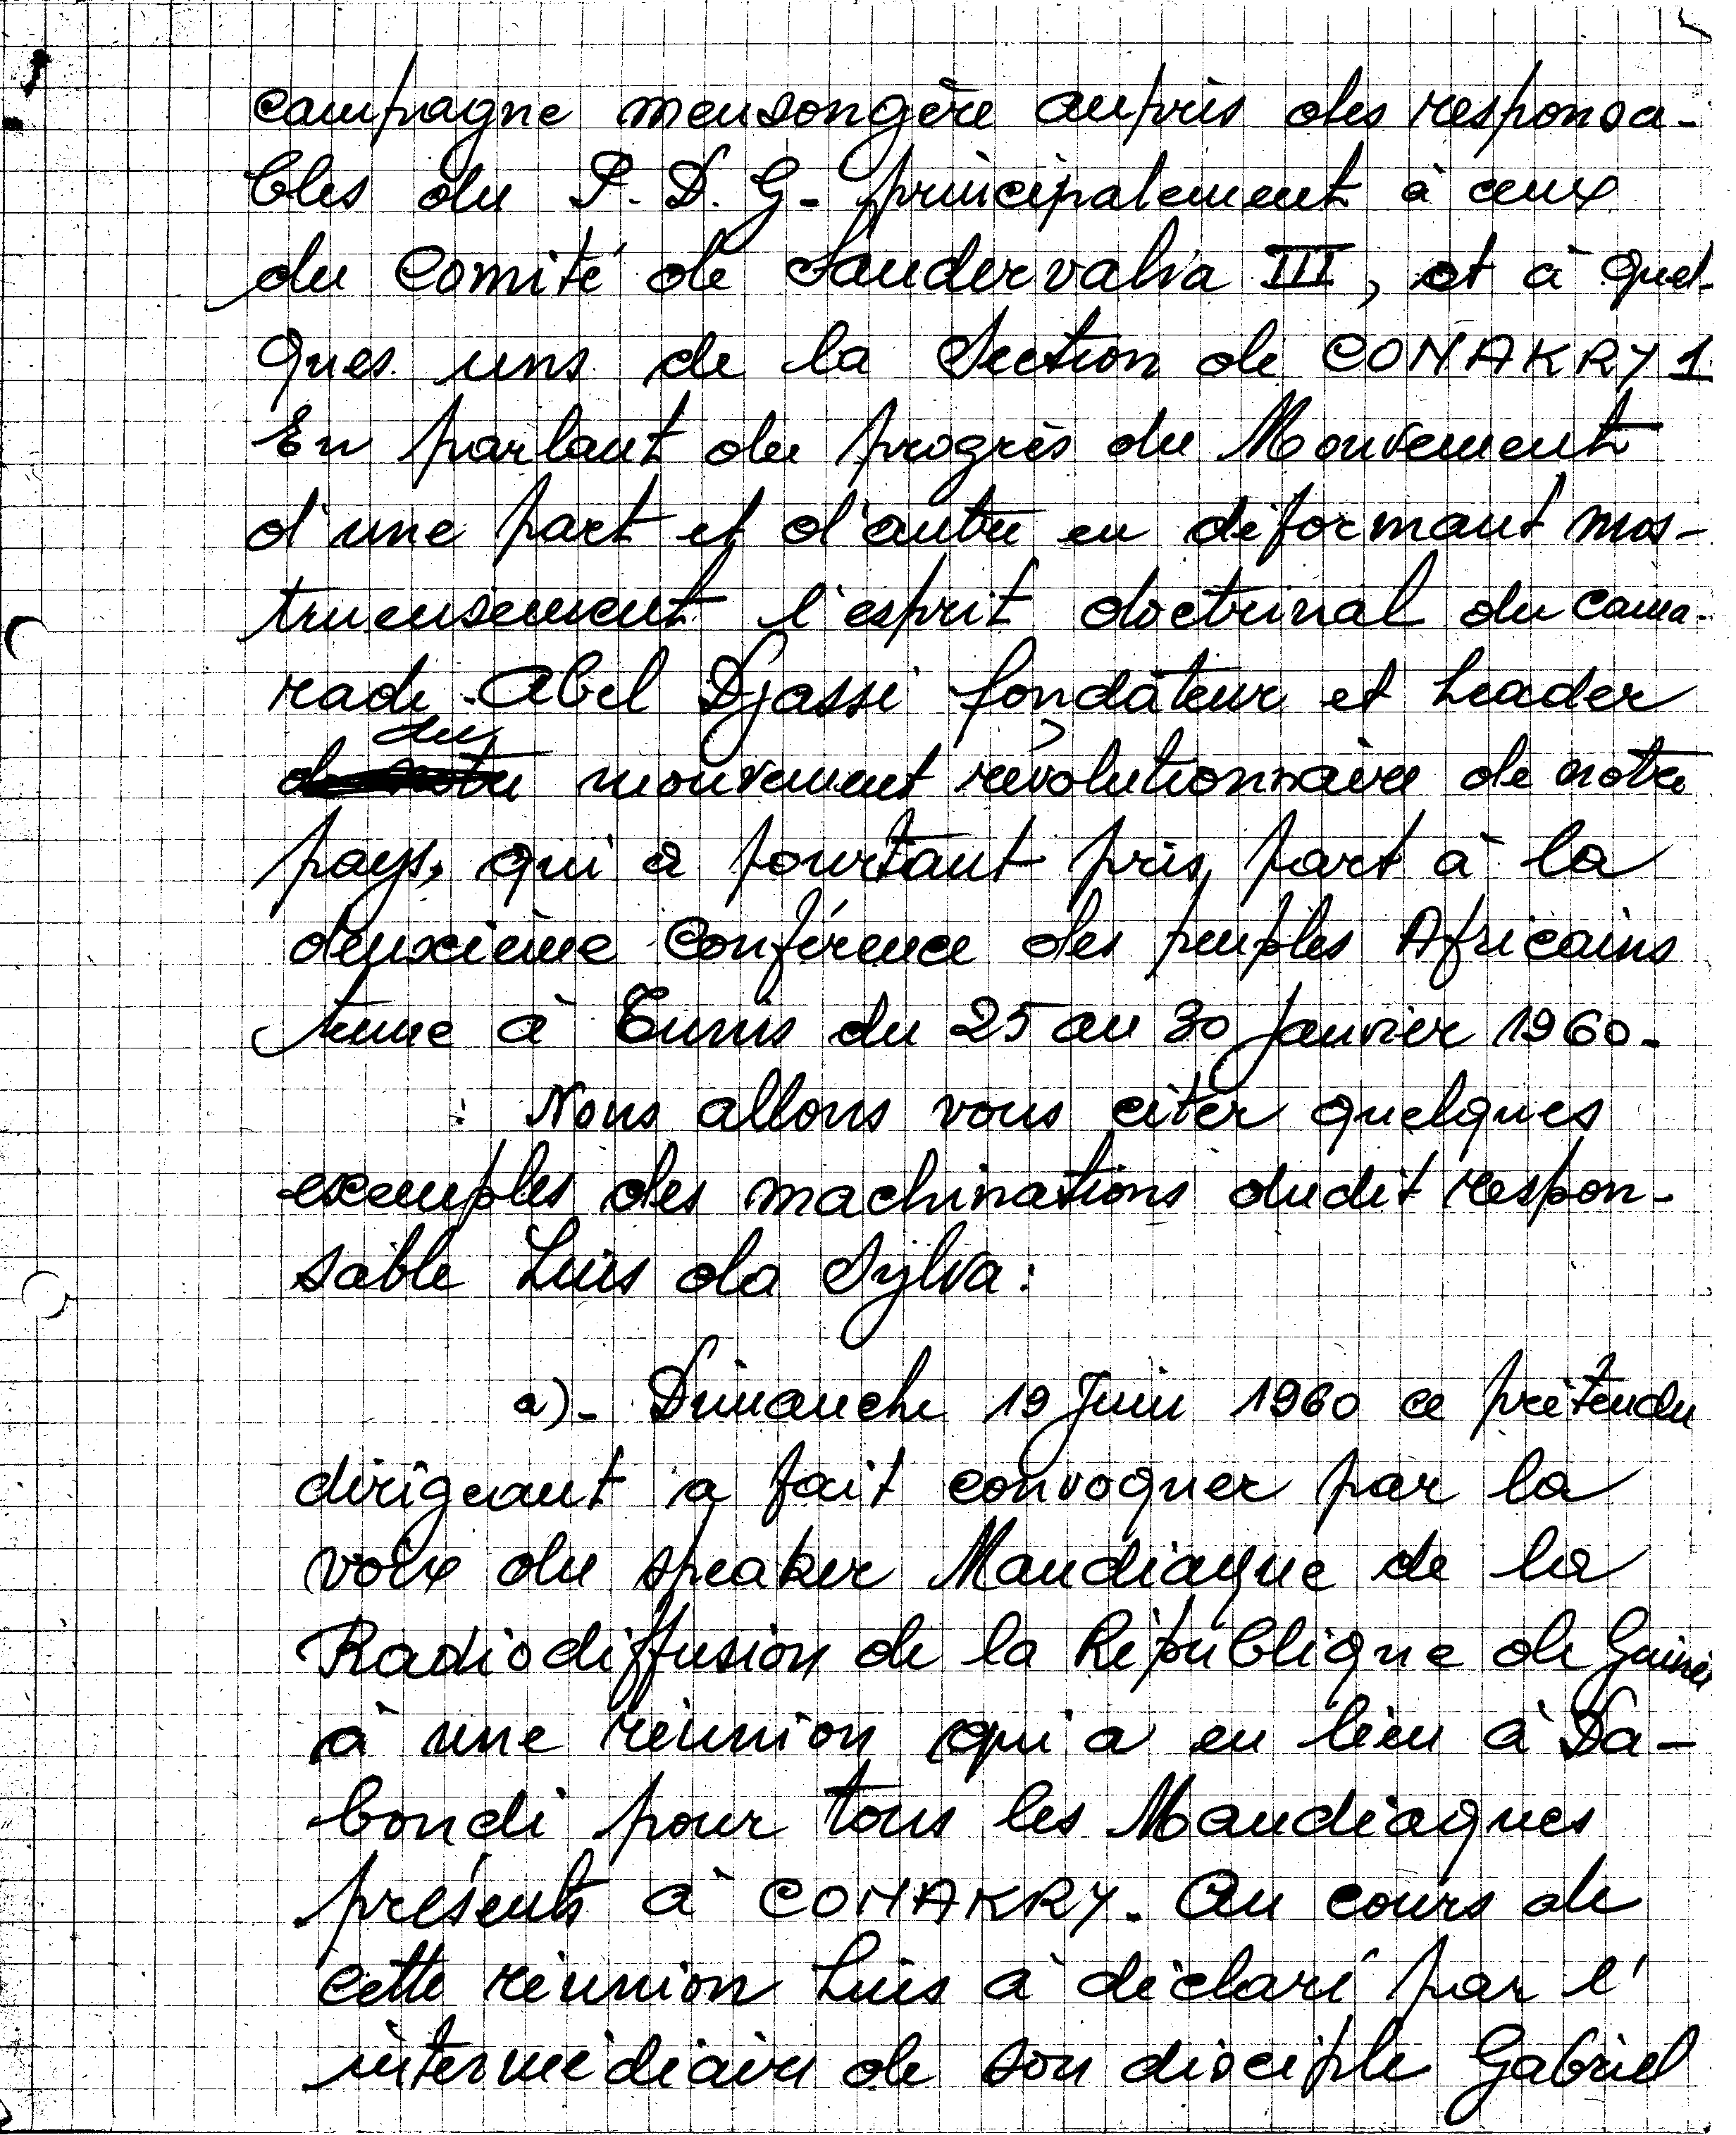 campagne mensongère auprès des responsa-
bles du P. D. G- principalement à ceux
du Comité de Sandervalia III, et à quel-
ques uns de la Section de CONAKRY 1
En parlant du progrès du Mouvement
d'une part et d'autre en déformant mos-
trueusement l'esprit doctrinal du cama-
rade Abel Djassi fondateur et Leader
du
mouvement révolutionnaire de notre
pays, qui a pourtant pris part à la
deuxième Conférence des peuples Africains
tenue à Tunis du 25 au 30 Janvier 1960.
Nous allons vous citer quelques
exemples des machinations dudit respon-
sable Luis da Sylva:
a)- Dimanche 19 Juin 1960 ce prétendu
dirigeant a fait convoquer par la
voix du speaker Mandiaque de la
Radiodiffusion de la République de Guinée
à une réunion qui a eu lieu à Da-
bondi pour tous les Mandiaques
présents à CONAKRY. Au cours de
cette réunion Luis à déclaré par l'
intermédiaire de son disciple Gabriel